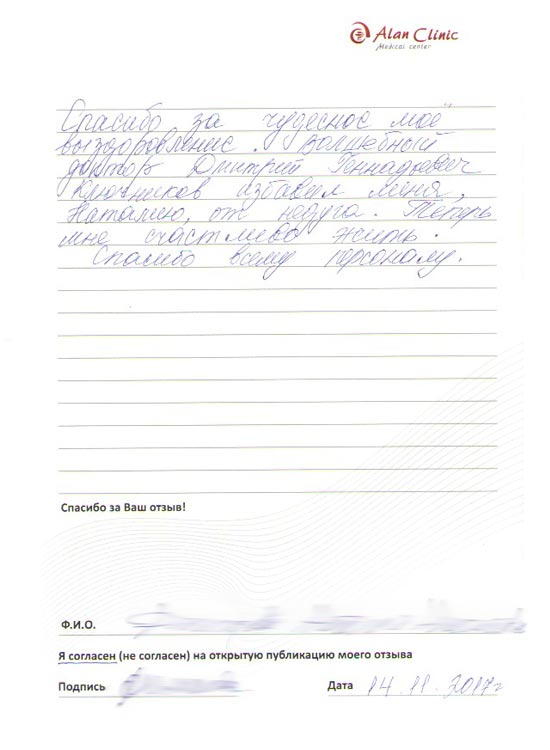 Alan Clinic
Medical center
Спасибо за чудесное моё
выздоровление. Волшебный
доктор Дмитрий Геннадьевич
Ключников избавил меня,
Наталию, от недуга. Теперь
мне счастливо жить.
Спасибо всему персоналу.
Спасибо за Ваш отзыв!
Ф.И.О.
Я согласен (не согласен) на открытую публикацию моего отзыва
Подпись Дата 14.11.2017г